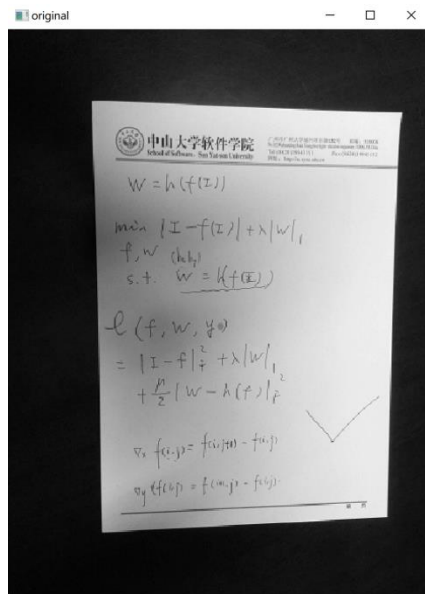 original
中山大学软件学院
School of Software, Sun Yat-sen University
W = h(f(I))
min |I - f(I)| + λ|W|₁
f, w
s.t. W = h(f(I))
ℓ(f, W, y)
= |I - f|²_F + λ|W|₁
+ μ/2 |W - h(f)|²_F
∇x f(i,j) = f(i,j+1) - f(i,j)
∇y f(i,j) = f(i+1,j) - f(i,j)